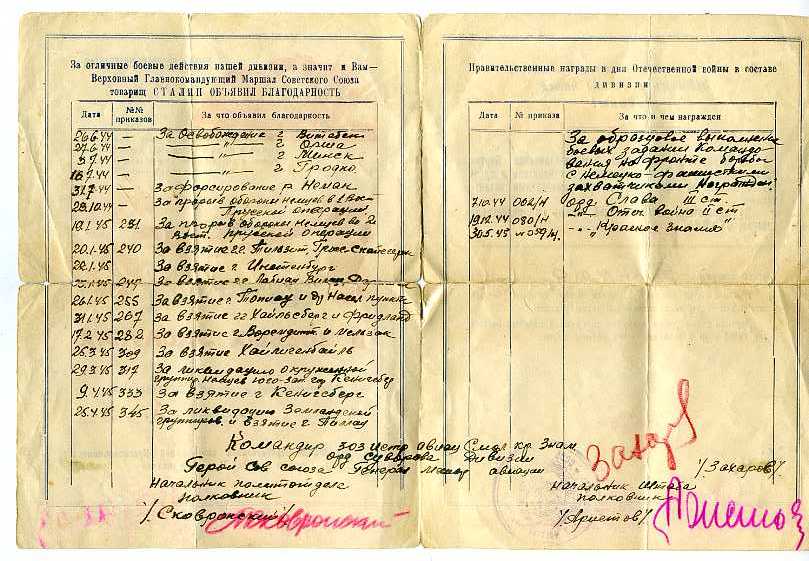 За отличные боевые действия нашей дивизии, а значит и Вам—
Верховный Главнокомандующий Маршал Советского Союза
товарищ СТАЛИН ОБЪЯВИЛ БЛАГОДАРНОСТЬ
Дата
№№ приказов
За что объявил благодарность
26.6.44 — За освобождение г. Витебск
27.6.44 — —"— г Орша
3.7.44 — —"— г Минск
16.7.44 — —"— г Гродно.
31.7.44 — За форсирование р Неман
23.10.44 — За прорыв обороны немцев в
Прусской операции
19.1.45 231 За прорыв обороны немцев во 2
Вост. Прусской операции
20.1.45 240 За взятие гг. Тильзит,
22.1.45 За взятие г Инстенбург
За взятие гг Лабиау
26.1.45 255 За взятие г Тапиау и др Насел пункты
31.1.45 267 За взятие гг Хайльсберг и Фридланд
17.2.45 282 За взятие г Вормдитт и Мельзак
25.3.45 309 За взятие Хайлигенбайль
29.3.45 317 За ликвидацию окруженной
группир немцев юго-зап гор Кенигсбер
9.4.45 333 За взятие г Кенигсберг
25.4.45 345 За ликвидацию Земландской
группиров. и взятие г Пилау
Правительственные награды в дни Отечественной войны в составе
дивизии
Дата
№ приказа
За что и чем награжден
За образцовое выполнен
боевых задании Командо-
вания на фронте борьбы
с немецко-фашисткими
захватчиками награжден
7.10.44 062/н орд Слава III ст.
19.12.44 080/н —"— Отеч война II ст
30.5.45 —"— "Красное знамя"
Командир 303 Истр авиац Смол кр Знам
орд Суворова дивизии
Герой Сов союза Генерал Майор авиации
/Захаров/
Начальник политотдела
полковник
/Сковронский/
Начальник Штаба
полковник
/Аристов/